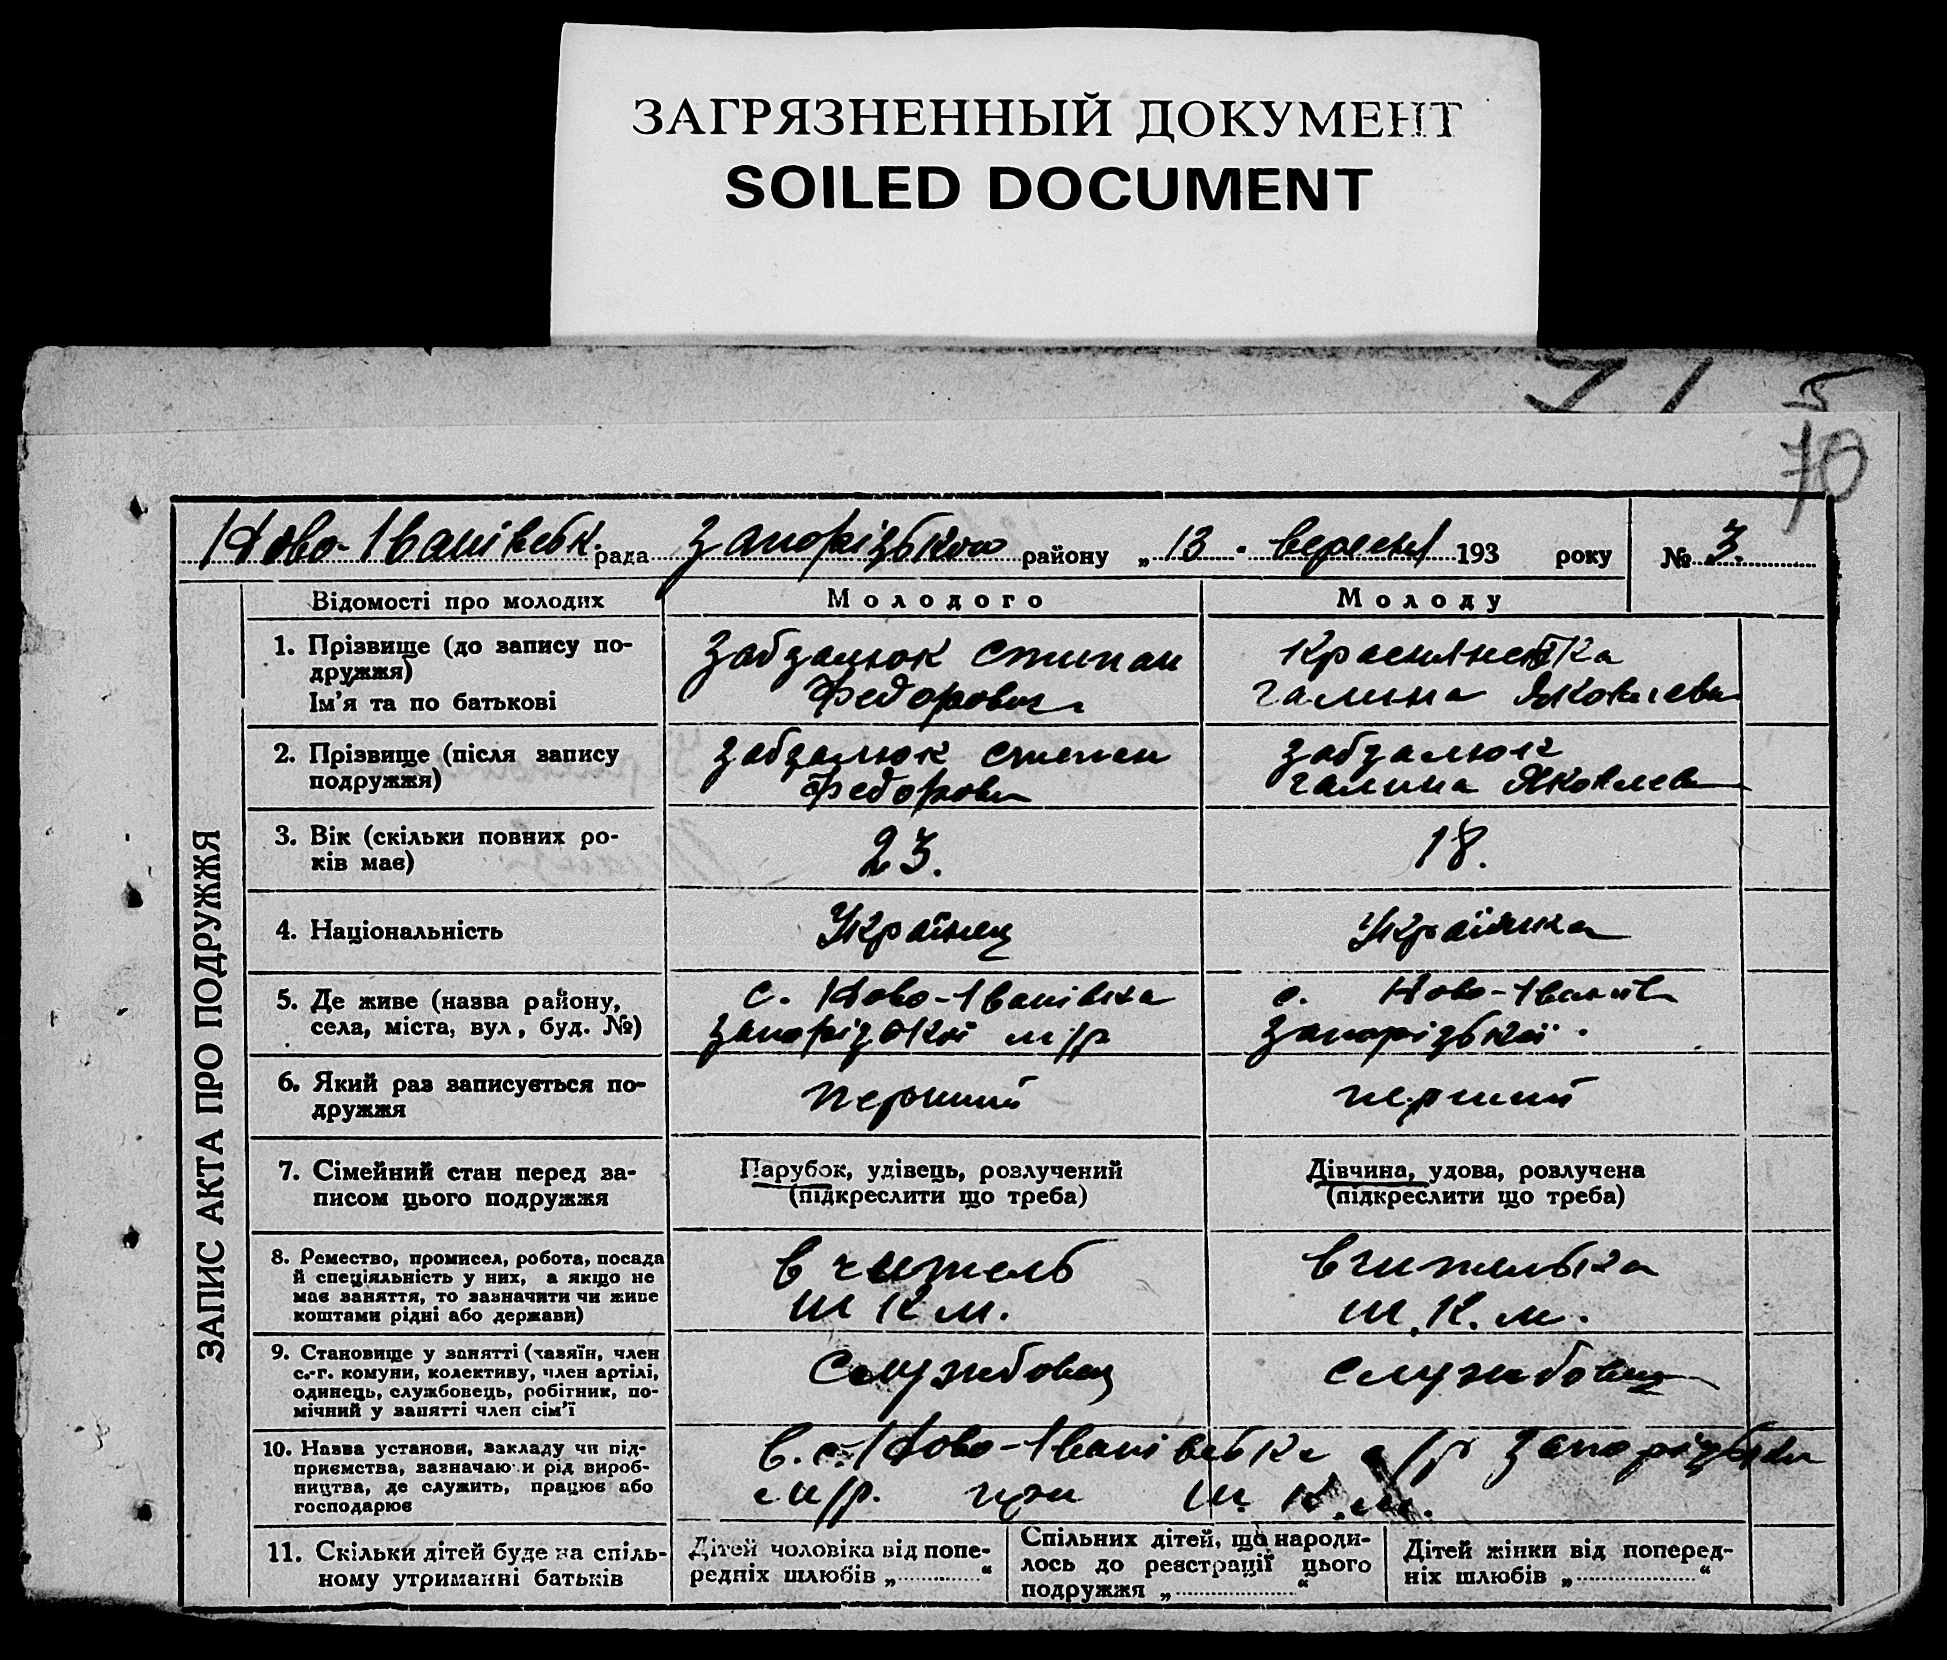 ЗАГРЯЗНЕННЫЙ ДОКУМЕНТ
SOILED DOCUMENT
71 5
70
Ново-Іванівськ. рада Запорізького району „ 13 . вересня 193 року № 3.
ЗАПИС АКТА ПРО ПОДРУЖЖЯ
Відомості про молодих Молодого Молоду
1. Прізвище (до запису по-
дружжя)
Ім'я та по батькові
Забдалюк Степан
Федорович
Краснянська
Галина Яковлевна
2. Прізвище (після запису
подружжя)
Забдалюк Степан
Федорович
Забдалюк
Галина Яковлевна
3. Вік (скільки повних ро-
ків має)
23.
18.
4. Національність
Українец
Українка
5. Де живе (назва району,
села, міста, вул, буд. №)
с. Ново-Іванівка
Запорізької м/р
с. Ново-Іванів
Запорізької.
6. Який раз записується по-
дружжя
перший
перший
7. Сімейний стан перед за-
писом цього подружжя
Парубок, удівець, розлучений
(підкреслити що треба)
Дівчина, удова, розлучена
(підкреслити що треба)
8. Ремество, промисел, робота, посада
й спеціяльність у них, а якщо не
має заняття, то зазначити чи живе
коштами рідні або держави)
Вчитель
Ш К М.
Вчителька
Ш. К. М.
9. Становище у занятті (хазяїн, член
с.-г. комуни, колективу, член артілі,
одинець, службовець, робітник, по-
мічний у занятті член сім'ї
Службовец
Службовец
10. Назва установи, закладу чи під-
приємства, зазначаючи рід вироб-
ництва, де служить, працює або
господарює
В. с. Ново-Іванівська с/р Запорізька
м/р. при Ш. К. М.
11. Скільки дітей буде на спіль-
ному утриманні батьків
Дітей чоловіка від попе-
редніх шлюбів „ “
Спільних дітей, що народи-
лось до реєстрації цього
подружжя „ “
Дітей жінки від поперед-
ніх шлюбів „ “